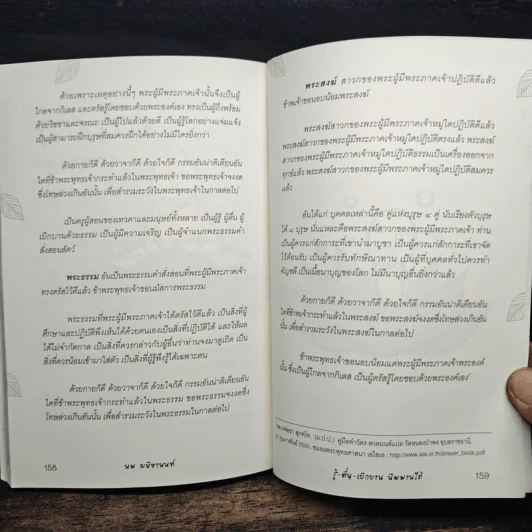 ด้วยเพราะเหตุอย่างนี้ๆ พระผู้มีพระภาคเจ้านั้นจึงเป็นผู้
ไกลจากกิเลส และตรัสรู้โดยชอบด้วยพระองค์เอง ทรงเป็นผู้ถึงพร้อม
ด้วยวิชชาและจรณะ เป็นผู้ไปแล้วด้วยดี เป็นผู้รู้โลกอย่างแจ่มแจ้ง
เป็นผู้สามารถฝึกบุรุษที่สมควรฝึกได้อย่างไม่มีใครยิ่งกว่า
ด้วยกายก็ดี ด้วยวาจาก็ดี ด้วยใจก็ดี กรรมอันน่าติเตียนอัน
ใดที่ข้าพระพุทธเจ้ากระทำแล้วในพระพุทธเจ้า ขอพระพุทธเจ้างด

ซึ่งโทษล่วงเกินอันนั้น เพื่อสำรวมระวังในพระพุทธเจ้าในกาลต่อไป
เป็นครูผู้สอนของเทวดาและมนุษย์ทั้งหลาย เป็นผู้รู้ ผู้ตื่น ผู้
เบิกบานด้วยธรรม เป็นผู้มีความเจริญ เป็นผู้จำแนกพระธรรมคำ
สั่งสอนสัตว์
พระธรรม อันเป็นพระธรรมคำสั่งสอนที่พระผู้มีพระภาคเจ้า
ทรงตรัสไว้ดีแล้ว ข้าพระพุทธเจ้าขอนมัสการพระธรรม
พระธรรมที่พระผู้มีพระภาคเจ้าได้ตรัสไว้ดีแล้ว เป็นสิ่งที่ผู้
ศึกษาและปฏิบัติพึงเห็นได้ด้วยตนเองเป็นสิ่งที่ปฏิบัติได้ และให้ผล
ได้ไม่จำกัดกาล เป็นสิ่งที่ควรกล่าวกับผู้อื่นว่าท่านจงมาดูเถิด เป็น
สิ่งที่ควรน้อมเข้ามาใส่ตัว เป็นสิ่งที่ผู้รู้พึงรู้ได้เฉพาะตน
ด้วยกายก็ดี ด้วยวาจาก็ดี ด้วยใจก็ดี กรรมอันน่าติเตียนอัน
ใดที่ข้าพระพุทธเจ้ากระทำแล้วในพระธรรม ขอพระธรรมจงงดซึ่ง
โทษล่วงเกินอันนั้น เพื่อสำรวมระวังในพระธรรมในกาลต่อไป
158
นม มนิษานนท์
พระสงฆ์ สาวกของพระผู้มีพระภาคเจ้าปฏิบัติดีแล้ว
ข้าพเจ้าขอนอบน้อมพระสงฆ์
พระสงฆ์สาวกของพระผู้มีพระภาคเจ้าหมู่ใดปฏิบัติดีแล้ว
พระสงฆ์สาวกของพระผู้มีพระภาคเจ้าหมู่ใดปฏิบัติตรงแล้ว พระสงฆ์
สาวกของพระผู้มีพระภาคเจ้าหมู่ใดปฏิบัติธรรมเป็นเครื่องออกจาก
ทุกข์แล้ว พระสงฆ์สาวกของพระผู้มีพระภาคเจ้าหมู่ใดปฏิบัติสมควร
แล้ว
อันได้แก่ บุคคลเหล่านี้คือ คู่แห่งบุรุษ ๔ คู่ นับเรียงตัวบุรุษ
ได้ ๘ บุรุษ นั่นแหละคือพระสงฆ์สาวกของพระผู้มีพระภาคเจ้า ท่าน
เป็นผู้ควรแก่สักการะที่เขานำมาบูชา เป็นผู้ควรแก่สักการะที่เขาจัด
ไว้ต้อนรับ เป็นผู้ควรรับทักษิณาทาน เป็นผู้ที่บุคคลทั่วไปควรทำ
อัญชลี เป็นเนื้อนาบุญของโลก ไม่มีนาบุญอื่นยิ่งกว่าแล้ว
ด้วยกายก็ดี ด้วยวาจาก็ดี ด้วยใจก็ดี กรรมอันน่าติเตียนอัน
ใดที่ข้าพระพุทธเจ้ากระทำแล้วในพระสงฆ์ ขอพระสงฆ์จงงดซึ่งโทษล่วงเกินอัน
นั้น เพื่อสำรวมระวังในพระสงฆ์ในกาลต่อไป
ข้าพระพุทธเจ้าขอนอบน้อมแด่พระผู้มีพระภาคเจ้าพระองค์
นั้น ซึ่งเป็นผู้ไกลจากกิเลส เป็นผู้ตรัสรู้โดยชอบด้วยพระองค์เอง
(ม.ป.ป.) คู่มือทำวัตร-สวดมนต์แปล วัดหนองป่าพง อุบลราชธานี.
กุมภาพันธ์ 2555, ชมรมพระพุทธศาสนา เอไอเอ : http://www.aia.or.th/prayer_book.pdf
รู้-ตื่น-เบิกบาน นิพพานได้
159